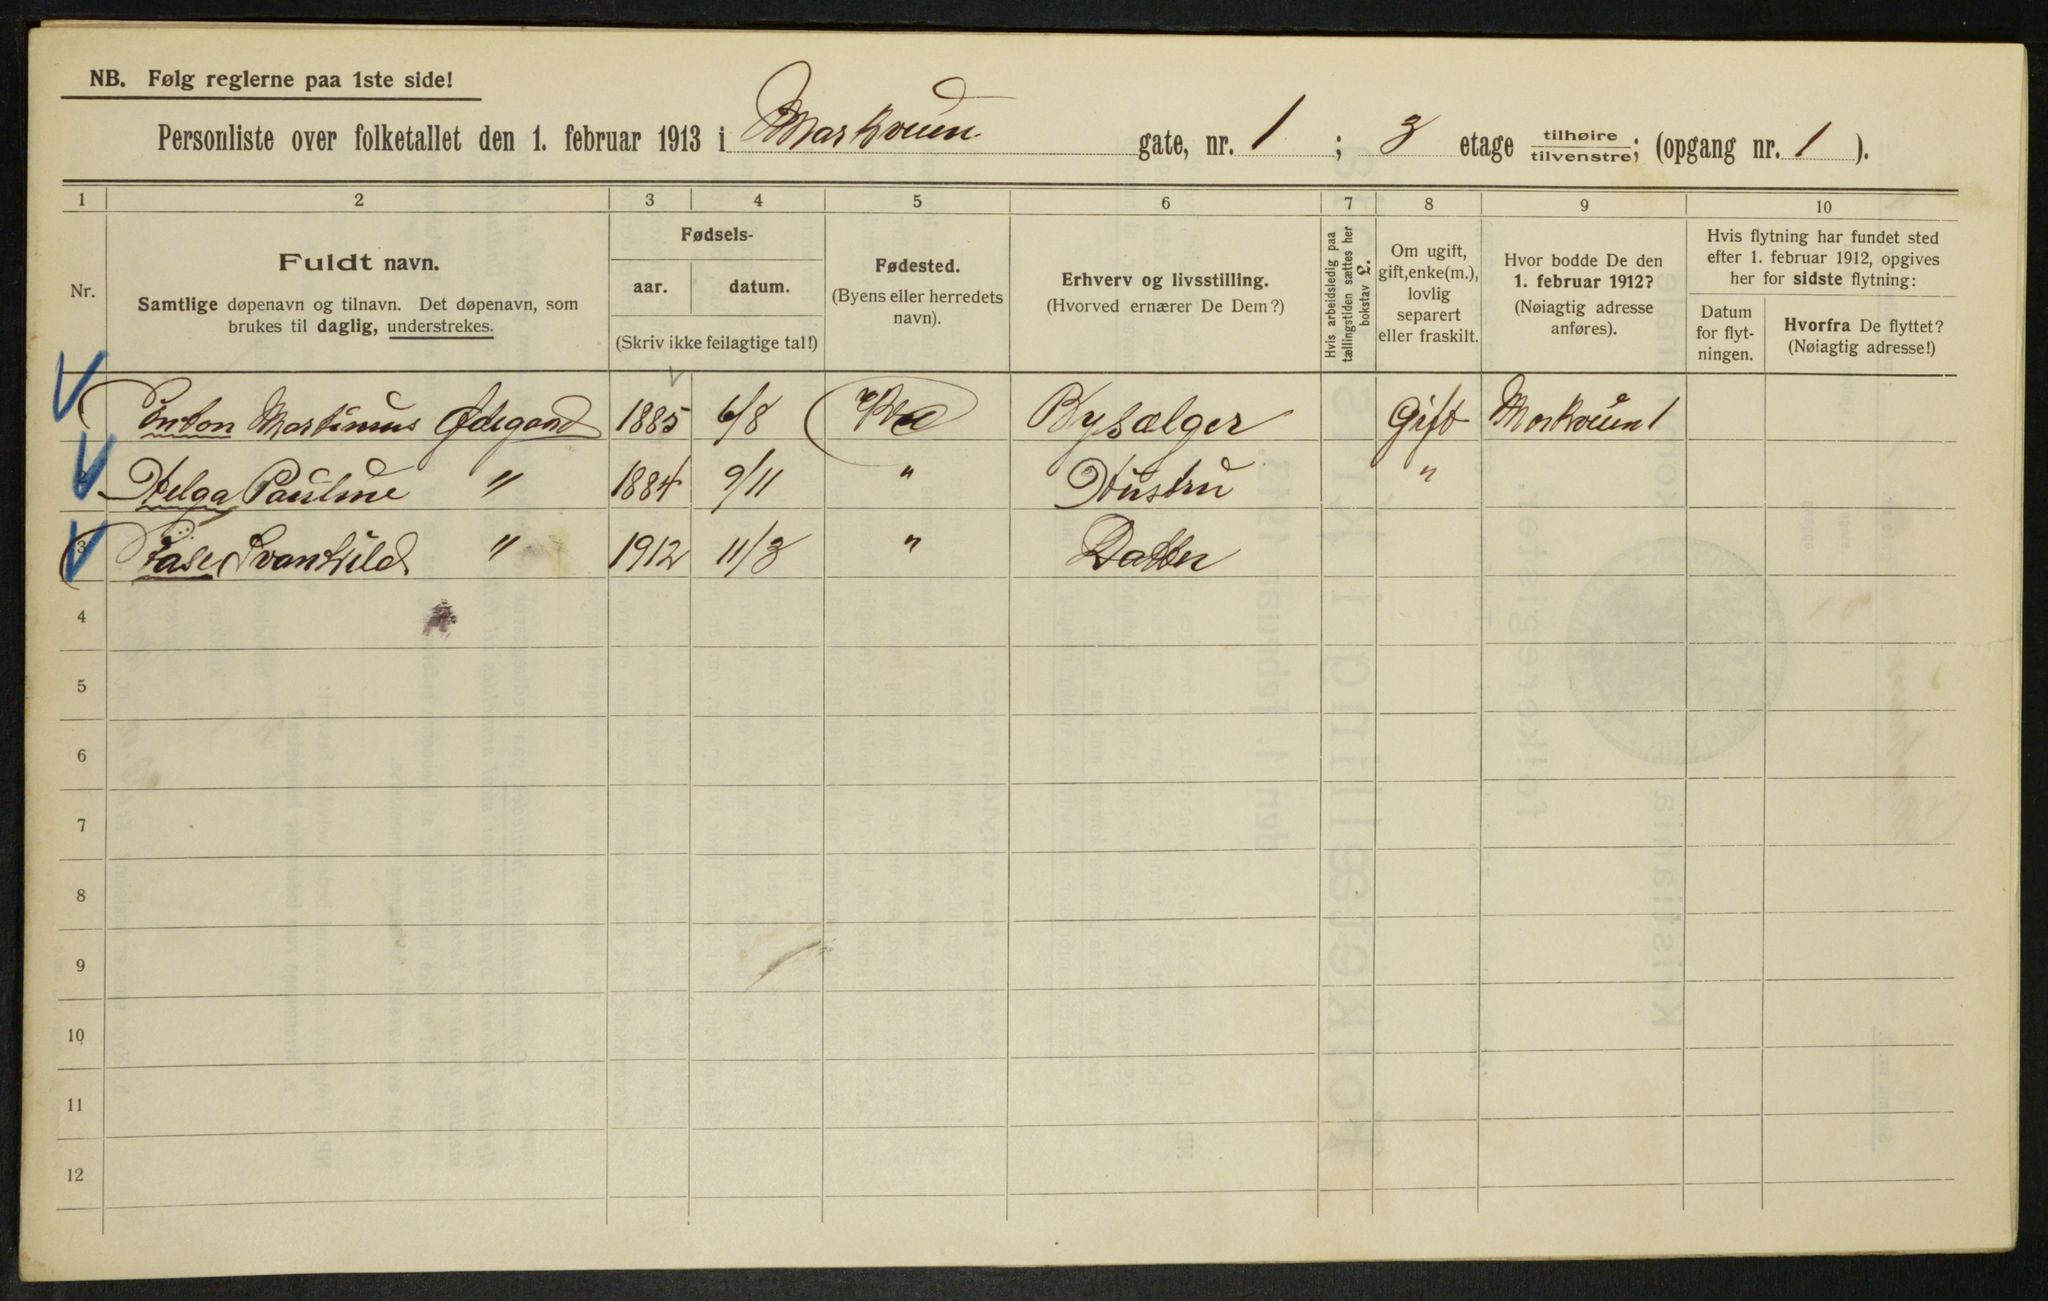 NB. Følg reglerne paa 1ste side!
Personliste over folketallet den 1. februar 1913 i Markveien gate, nr. 1 ; 3 etage tilhøire/tilvenstre; (opgang nr. 1 ).
1 2 3 4 5 6 7 8 9 10
Nr.
Fuldt navn.
Samtlige døpenavn og tilnavn. Det døpenavn, som
brukes til daglig, understrekes.
Fødsels-
aar. datum.
(Skriv ikke feilagtige tal!)
Fødested.
(Byens eller herredets
navn).
Erhverv og livsstilling.
(Hvorved ernærer De Dem?)
Hvis arbeidsledig paa
tællingstiden sættes her
bokstav L.
Om ugift,
gift, enke(m.),
lovlig
separert
eller fraskilt.
Hvor bodde De den
1. februar 1912?
(Nøiagtig adresse
anføres).
Hvis flytning har fundet sted
efter 1. februar 1912, opgives
her for sidste flytning:
Datum
for flyt-
ningen.
Hvorfra De flyttet?
(Nøiagtig adresse!)
Anton Martinius Ødegaard 1885 6/8 Kra Bysælger Gift Markveien 1
Helga Pauline " 1884 9/11 " Hustru "
3 Aase Svanhild " 1912 11/3 " Datter
4
5
6
7
8
9
10
11
12